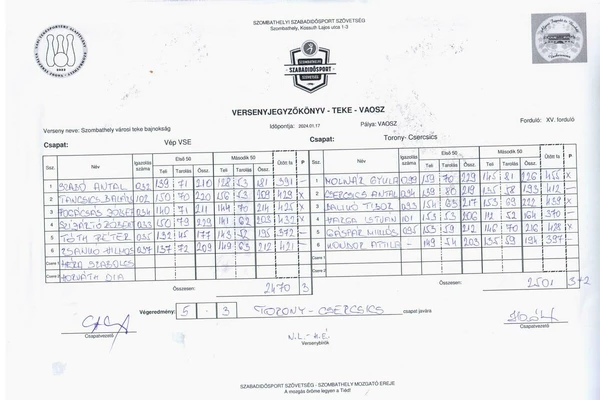 SZOMBATHELYI SZABADIDŐSPORT SZÖVETSÉG
Szombathely, Kossuth Lajos utca 1-3
SZOMBATHELYI
SZABADIDŐSPORT
SZÖVETSÉG
VERSENYJEGYZŐKÖNYV - TEKE - VAOSZ
Verseny neve: Szombathely városi teke bajnokság
Időpontja: 2024.01.17
Pálya: VAOSZ
Forduló: XV. forduló
Csapat: Vép VSE
Csapat: Torony- Csercsics
Ssz. Név Igazolás száma Első 50 Második 50 Ütött fa P
Teli Tarolás Össz. Teli Tarolás Össz.
1 SZABÓ ANTAL 032 139 71 210 128 53 181 391 -
2 TANCSICS BALÁZS 102 150 70 220 156 53 209 429 X
3 FOGACSAS JÓZSEF 034 140 71 211 144 70 214 425 X
4 150 79 229 141 62 203 432 X
5 TÓTH PÉTER 035 132 45 177 143 52 195 372 -
6 VILMOS 037 137 72 209 149 63 212 421 -
Csere 1 SZABOLCS
Csere 2 HORVÁTH
Összesen: 2470 3
Ssz. Név Igazolás száma Első 50 Második 50 Ütött fa P
Teli Tarolás Össz. Teli Tarolás Össz.
1 MOLNÁR GYULA 099 159 70 229 145 81 226 455 X
2 CSERCSICS ANTAL 094 139 80 219 135 58 193 412 -
3 BALIKÓ TIBOR 093 154 63 217 153 69 222 439 X
4 ISTVÁN 101 153 53 206 112 52 164 370 -
5 GÁSPÁR MIKLÓS 095 153 59 212 146 70 216 428 X
6 KONDOR ATTILA - 149 54 203 135 59 194 397 -
Csere 1
Csere 2
Összesen: 2501 3+2
Végeredmény: 5 - 3 TORONY - CSERCSICS csapat javára
Csapatvezető
Versenybírók
Csapatvezető
SZABADIDŐSPORT SZÖVETSÉG - SZOMBATHELY MOZGATÓ EREJE
A mozgás öröme legyen a Tiéd!